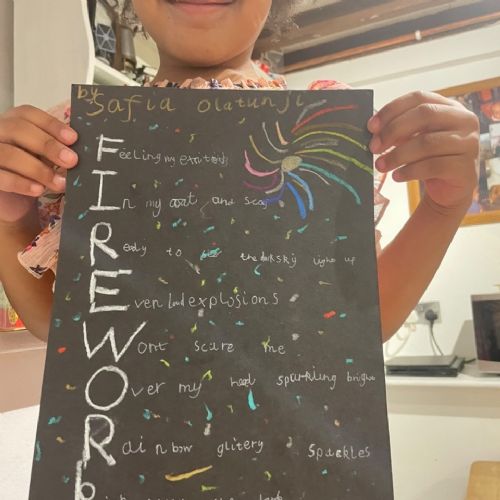 by
Safia Olatunji
Feeling my
In my and
Ready to the dark sky light up
Even loud explosions
Wont scare me
Over my head sparkling bright
Rainbow glitery Spackles